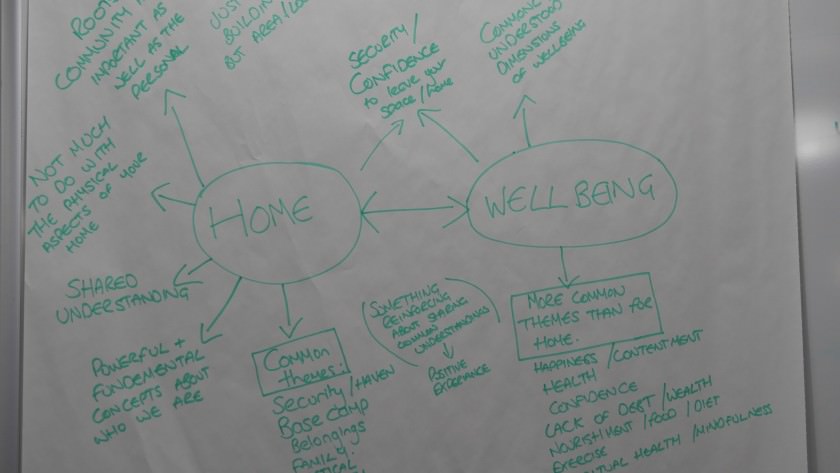 ROOTS
COMMUNITY IS
IMPORTANT AS
WELL AS THE
PERSONAL
JUST
BUILDING
BUT AREA/
SECURITY/
CONFIDENCE
to leave your
space/home
COMMONLY
UNDERSTOOD
DIMENSIONS
OF WELLBEING
NOT MUCH
TO DO WITH
THE PHYSICAL
ASPECTS OF YOUR
HOME
HOME
WELL BEING
SHARED
UNDERSTANDING
POWERFUL +
FUNDEMENTAL
CONCEPTS ABOUT
WHO WE ARE
Common
themes:
Security/HAVEN
Base camp
Belongings
FAMILY.
SOMETHING
REINFORCING
ABOUT SHARING
COMMON
UNDERSTANDINGS
POSITIVE
EXPERIANCE
MORE COMMON
THEMES THAN FOR
HOME.
HAPPINESS/CONTENTMENT
HEALTH
CONFIDENCE
LACK OF DEBT/WEALTH
NOURISHMENT/FOOD/DIET
EXERCISE
HEALTH/MINDFULNESS